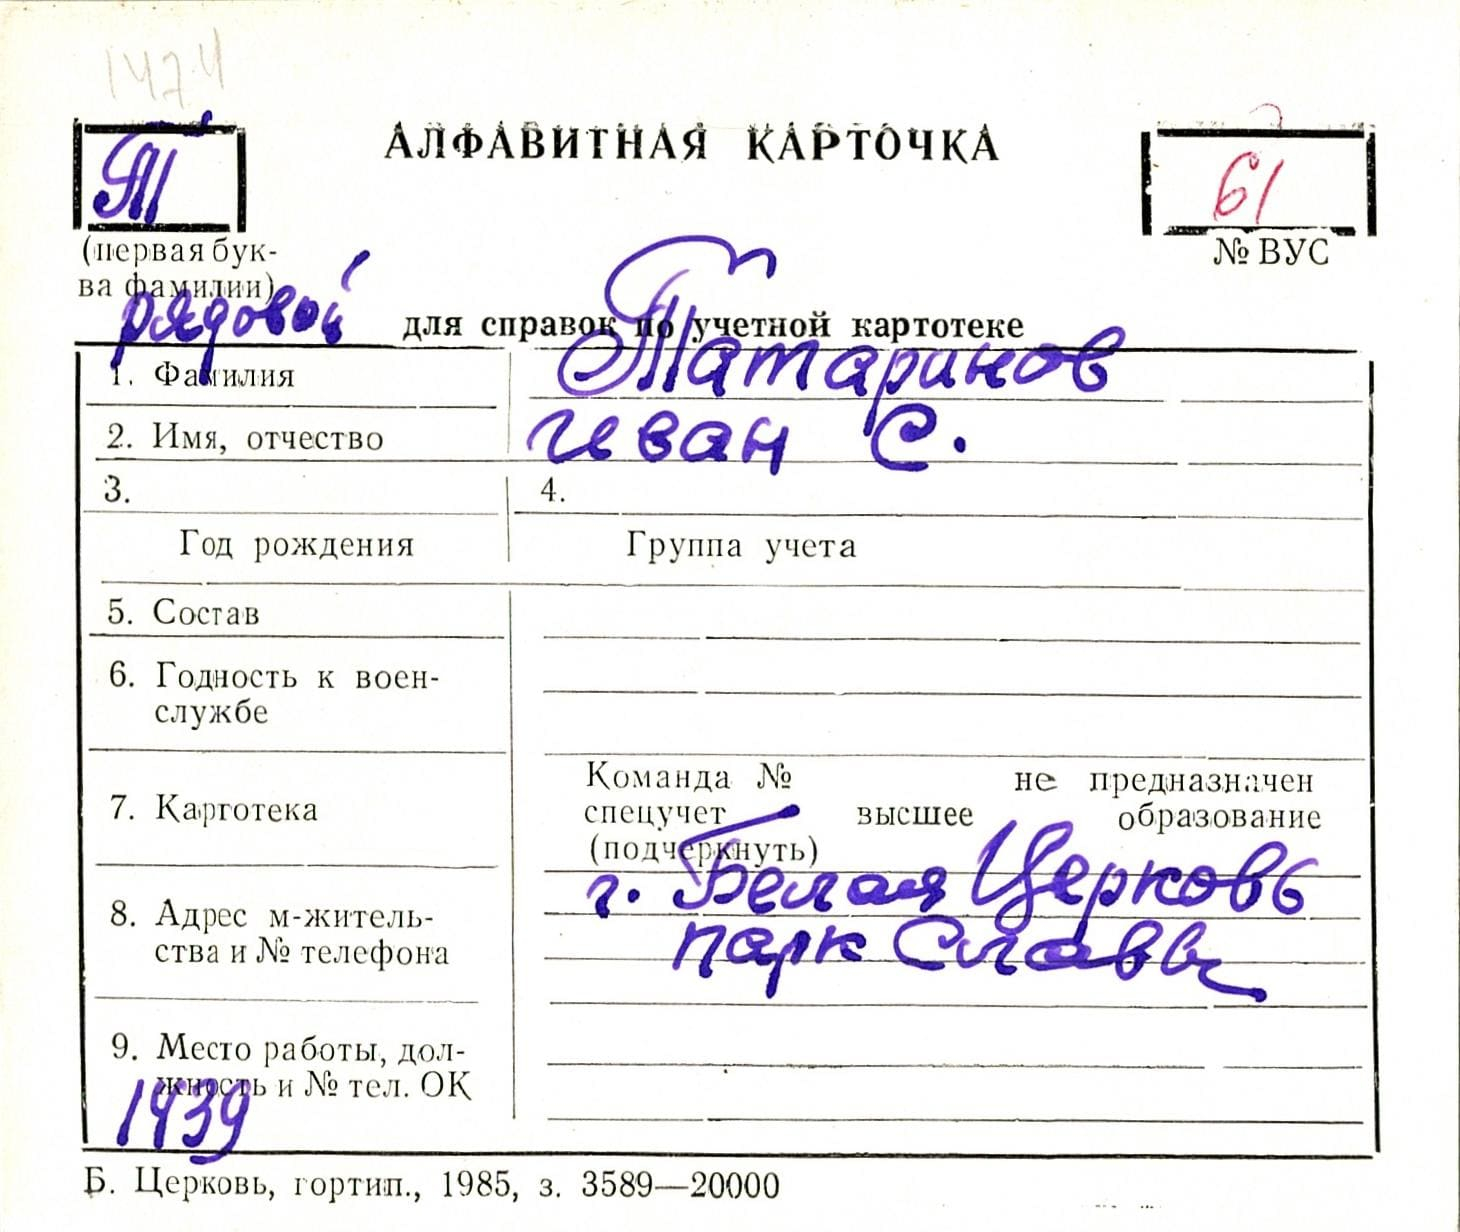 1474
Т
АЛФАВИТНАЯ КАРТОЧКА
61
(первая бук-
ва фамилии)
№ ВУС
рядовой
для справок по учетной картотеке
1. Фамилия Татаринов
2. Имя, отчество Иван С.
3. 4.
Год рождения Группа учета
5. Состав
6. Годность к воен-
службе
Команда № не предназначен
7. Картотека спецучет высшее образование
(подчеркнуть)
г. Белая Церковь
8. Адрес м-житель-
ства и № телефона парк Славы
9. Место работы, дол-
жность и № тел. ОК
1439
Б. Церковь, гортип., 1985, з. 3589—20000